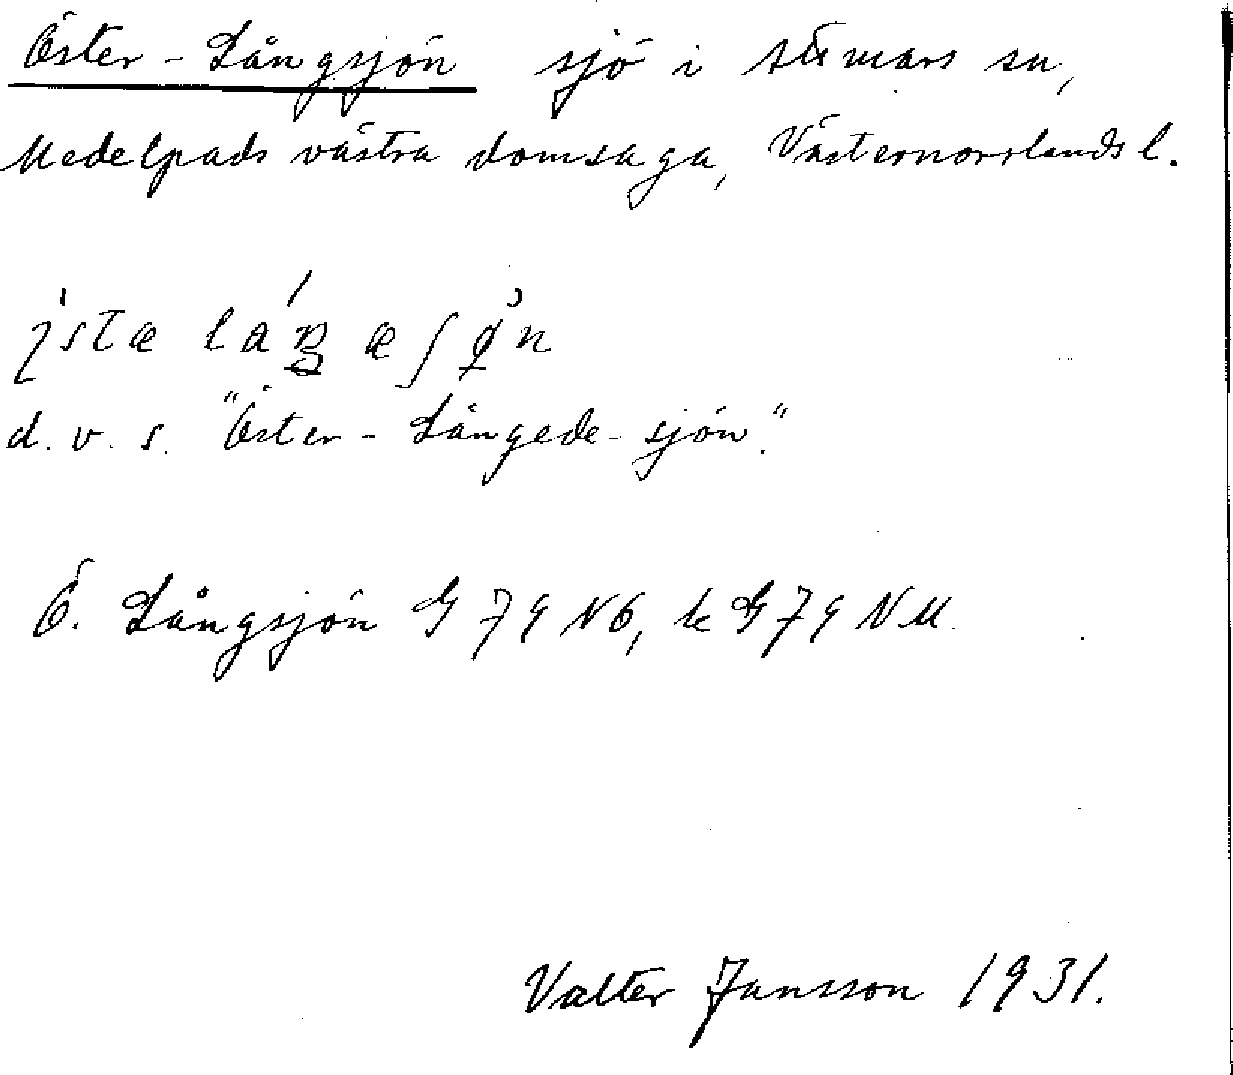 Öster-Långsjön sjö i Attmars sn,
Medelpads västra domsaga, Västernorrlands l.
d.v.s. "Öster-Långede-sjön."
Ö. Långsjön G 79 NÖ, k G 79 NM.
Valter Jansson 1931.